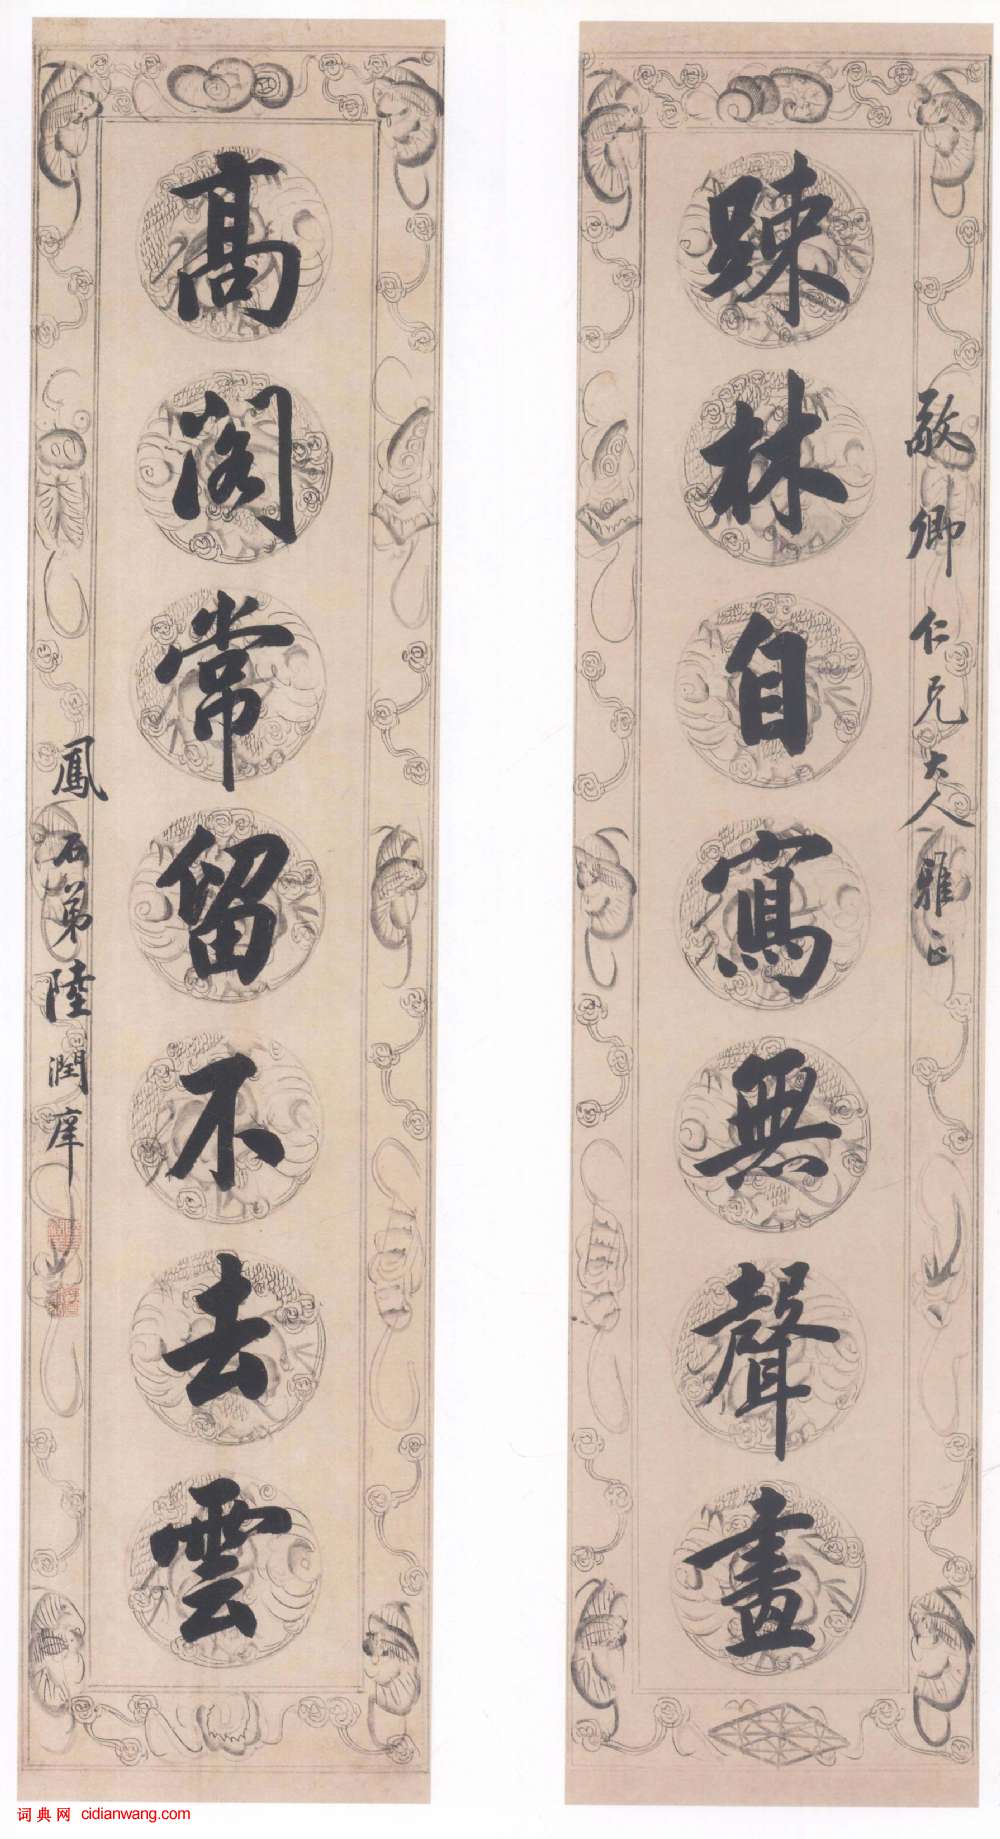 敬卿仁兄大人雅正
踈林自寫無聲畫
高閣常留不去雲
鳳石弟陸潤庠
词典网 cidianwang.com